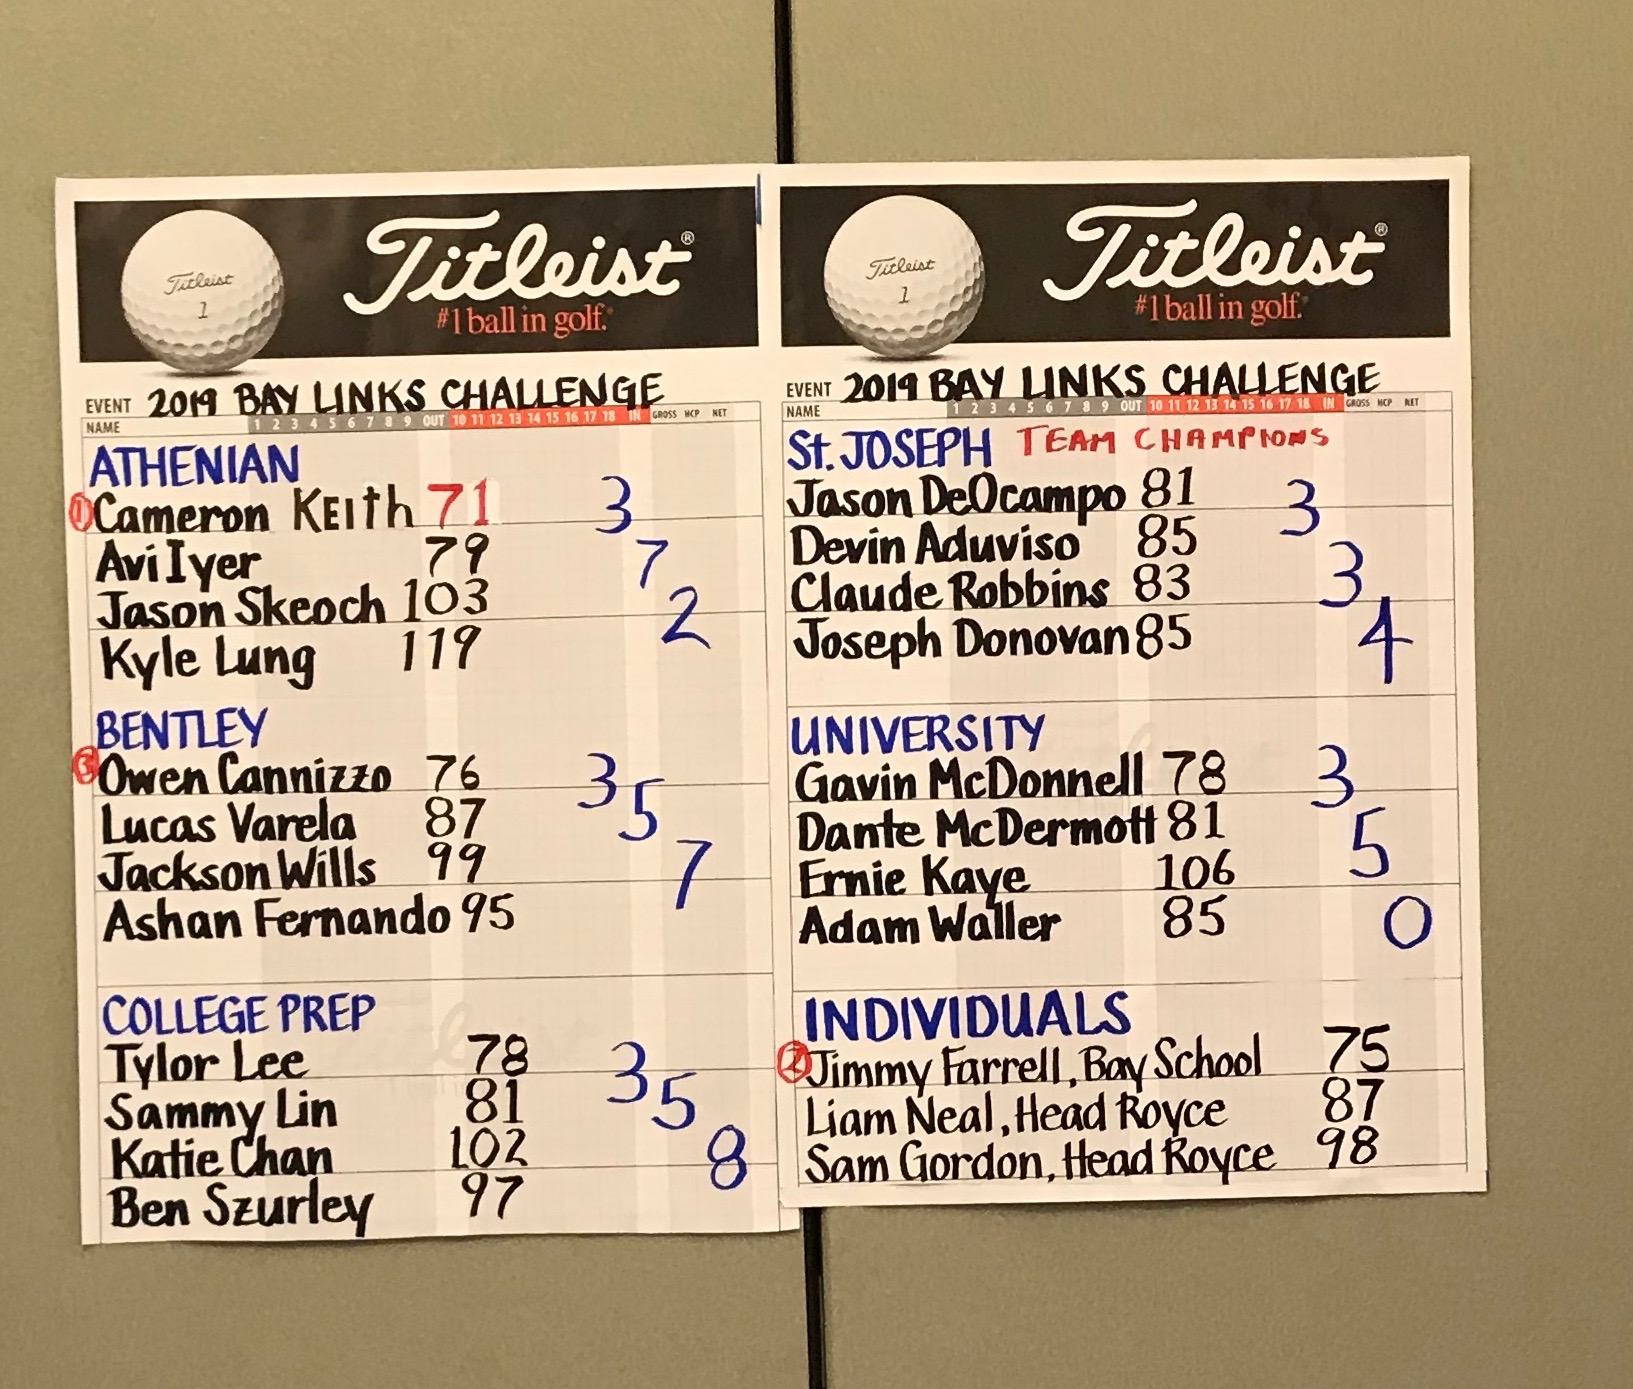 Titleist®
#1 ball in golf.®
Titleist
1
EVENT 2019 BAY LINKS CHALLENGE
NAME 1 2 3 4 5 6 7 8 9 OUT 10 11 12 13 14 15 16 17 18 IN GROSS HCP NET
ATHENIAN
① Cameron KEith 71 3
Avi Iyer 79 7
Jason Skeoch 103 2
Kyle Lung 119
BENTLEY
③ Owen Cannizzo 76 3
Lucas Varela 87 5
Jackson Wills 99 7
Ashan Fernando 95
COLLEGE PREP
Tylor Lee 78 3
Sammy Lin 81 5
Katie Chan 102 8
Ben Szurley 97
Titleist®
#1 ball in golf.®
Titleist
1
EVENT 2019 BAY LINKS CHALLENGE
NAME 1 2 3 4 5 6 7 8 9 OUT 10 11 12 13 14 15 16 17 18 IN GROSS HCP NET
St. JOSEPH TEAM CHAMPIONS
Jason DeOcampo 81 3
Devin Aduviso 85
Claude Robbins 83 3
Joseph Donovan 85 4
UNIVERSITY
Gavin McDonnell 78 3
Dante McDermott 81 5
Ernie Kaye 106
Adam Waller 85 0
INDIVIDUALS
② Jimmy Farrell, Bay School 75
Liam Neal, Head Royce 87
Sam Gordon, Head Royce 98